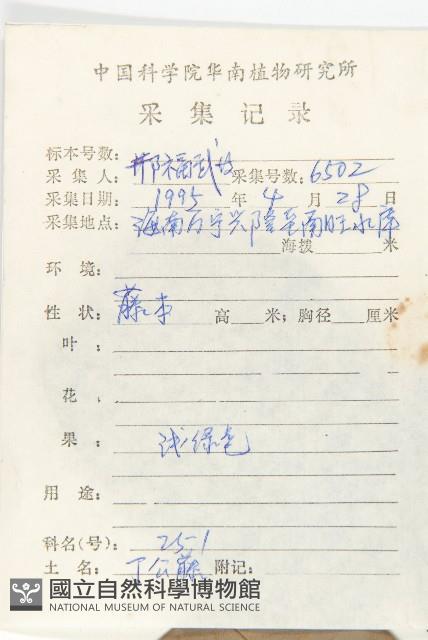 中国科学院华南植物研究所
采集记录
标本号数：
采集人：邢福武 采集号数：6502
采集日期：1995年4月28日
采集地点：海南万宁兴隆至南旺水库
海拨 米
环境：
性状：藤本 高 米；胸径 厘米
叶：
花：
果：浅绿色
用途：
科名(号)：251
土名：丁公藤 附记：
國立自然科學博物館
NATIONAL MUSEUM OF NATURAL SCIENCE